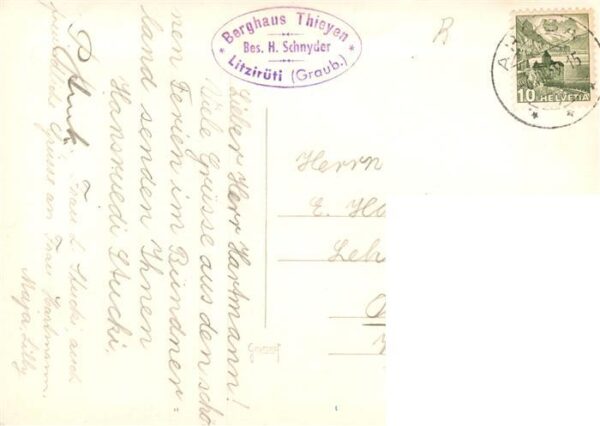 * Berghaus Thieyen *
Bes. H. Schnyder
Litzirüti (Graub.)
R
10 HELVETIA
Lieber Herr Hartmann!
Viele Grüsse aus den schö
nen Ferien im Bündner=
land senden Ihnen
Hansruedi Stucki.
Frau L. Stucki, auch
Gruss an Frau Hartmann.
Maja, Lilly
Herrn
E. Ha
Leh